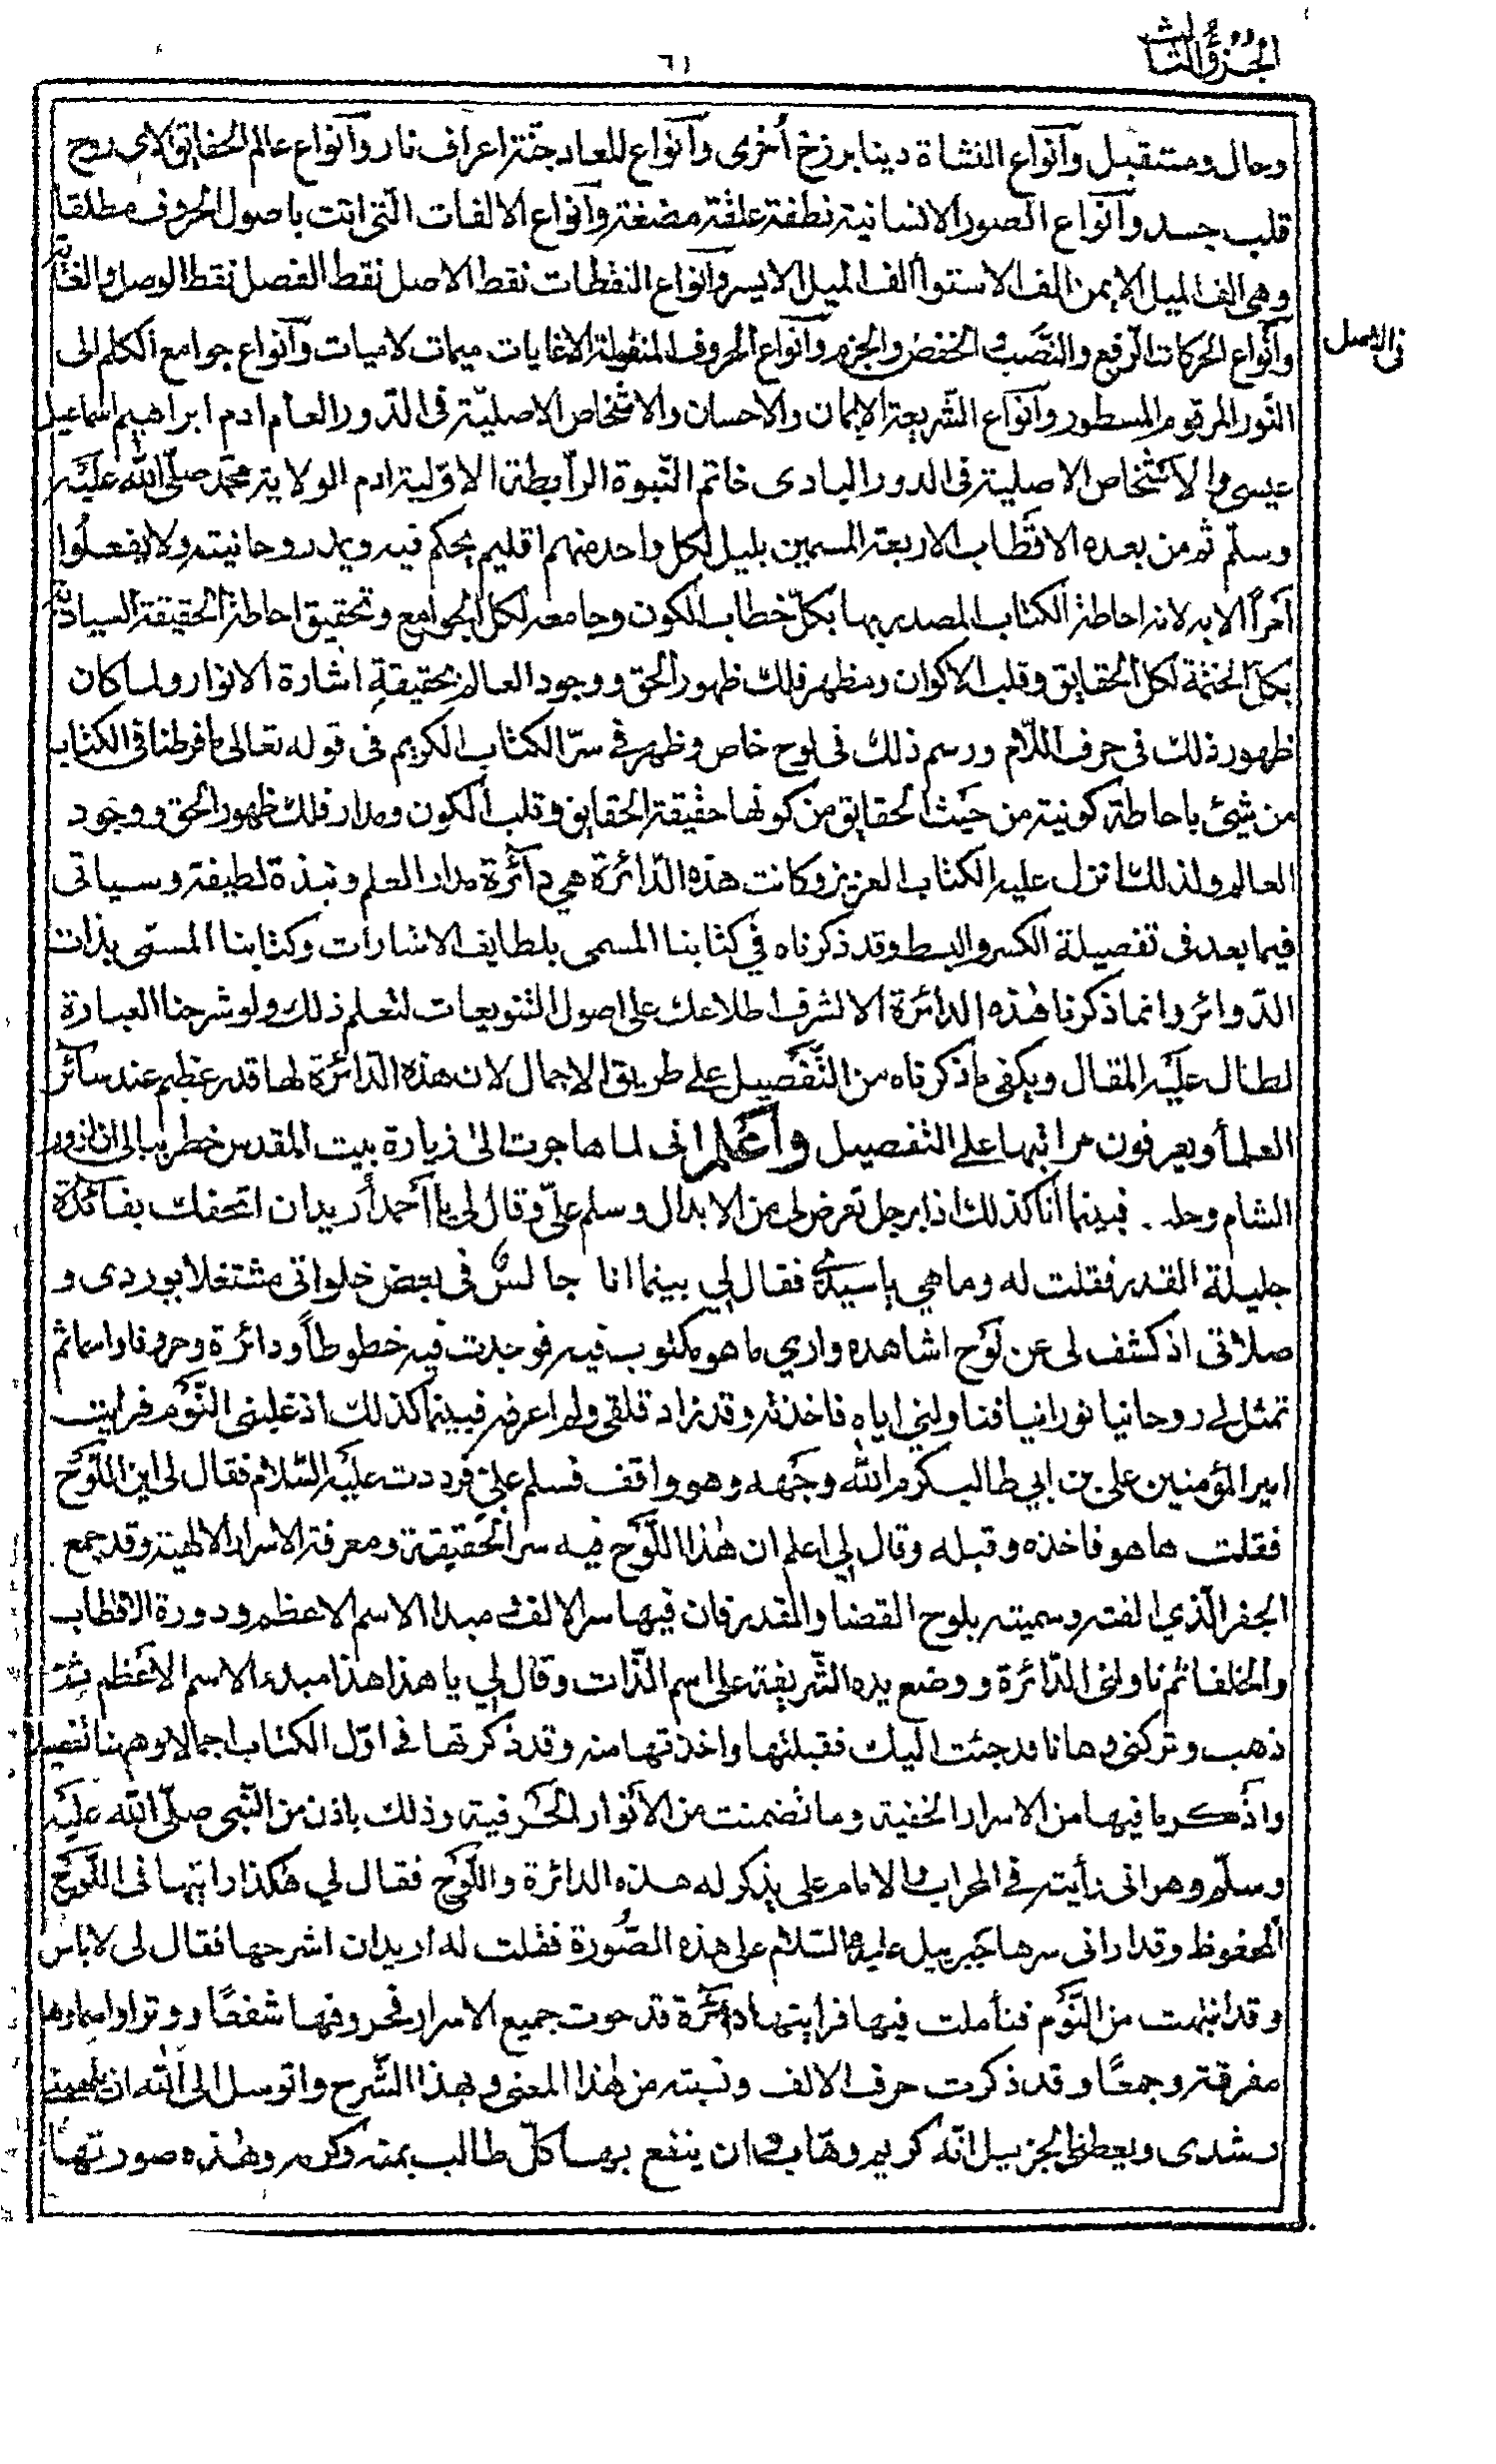 الجزؤ الثالث
٦١
وحال ومستقبل وأنواع النشاة دينا برزخ أخرى وأنواع المعاد جنة اعراف نار وأنواع عالم الحقايق روح
قلب جسد وأنواع الصور الانسانية نطفة علقة مضغة وأنواع الالفات التى اتت باصول الحروف مطلقا
وهى الف الميل الايمن الف الاستوا الف الميل الايسر وأنواع النقطات نقط الاصل نقط الفصل نقط الوصل
وأنواع الحركات الرفع والنصب والخفض والجزم وأنواع الحروف المنقوطة ميمات لاميات وأنواع جوامع الكلم الى
فى الاصل
النور المرقوم المسطور وأنواع الشريعة الايمان والاحسان والاشخاص الاصلية فى الدور العام ادم ابراهيم اسماعيل
عيسى والاشخاص الاصلية فى الدور البادى خاتم النبوة الرابطة الاولية ادم الولاية محمد صلى الله عليه
وسلم ثم من بعده الاقطاب الاربعة المسمين بليل لكل واحد منهم اقليم يحكم فيه ويدر روحانيته ولا يفعلوا
أمرا الا به لانه احاطة الكتاب المصدر بها بكل خطاب الكون وجامعه لكل الجوامع وتحقيق احاطة الحقيقة
لكل الحقايق وقلب الاكوان ومظهر فلك ظهور الحق ووجود العالم بحقيقة اشارة الانوار ولما كان
ظهور ذلك فى حرف اللام ورسم ذلك فى لوح خاص وظهر فى سر الكتاب الكريم فى قوله تعالى ما فرطنا فى الكتاب
من شيئ باحاطة كونية من حيث الحقايق من كونها حقيقة الحقايق وقلب الكون ومدار فلك ظهور الحق ووجود
العالم ولذلك انزل عليه الكتاب العزيز وكانت هذه الدائرة هى دائرة مدار العلم ونبذة لطيفة وسياتى
فيما بعد فى تفصيلة الكسر والبسط وقد ذكرناه في كتابنا المسمى بلطايف الاشارات وكتابنا المسمى بذات
الدوائر وانما ذكرنا هذه الدائرة الا لشرف اطلاعك على اصول التنويعات لتعلم ذلك ولو شرحنا العبارة
لطال عليه المقال ويكفى ما ذكرناه من التفصيل على طريق الاجمال لان هذه الدائرة لها قدر عظيم عند سائر
العلما ويعرفون مراتبها على التفصيل وأعلم انى لما هاجرت الى زيارة بيت المقدس خطر ببالى ان ازور
الشام وحلب فبينما أنا كذلك اذا برجل تعرض لى من الابدال وسلم على وقال لى يا أحمد أريد ان اتحفك بفائدة
جليلة القدر فقلت له وما هي يا سيدي فقال لي بينما انا جالس فى بعض خلواتى مشتغلا بوردى و
صلاتى اذ كشف لى عن لوح اشاهده وارى ما هو مكتوب فيه فوجدت فيه خطوطاً ودائرة وحروفا واسما ثم
تمثل لى روحانيا نورانيا فناولنى اياه فاخذته وقد زاد قلقى ولم اعرفه فبينما كذلك اذ غلبنى النوم فرايت
امير المؤمنين على بن ابي طالب كرم الله وجهه وهو واقف فسلم علىّ فرددت عليه السلام فقال لى اين اللوح
فقلت ها هو فاخذه وقبله وقال لي اعلم ان هذا اللوح فيه سر الحقيقة ومعرفة الاسرار الالهية وقد جمع
الجفر الذي الفته وسميته بلوح القضا والقدر فان فيها سر الالف مبدا الاسم الاعظم ودورة الاقطاب
والخلفا ثم ناولنى الدائرة ووضع يده الشريفة على اسم الذات وقال لي يا هذا هذا مبدء الاسم الاعظم ثم
ذهب وتركنى وها نا قد جئت اليك فقبلتها واخذتها منه وقد ذكرتها فى اول الكتاب اجمالا
واذكر ما فيها من الاسرار الخفية وما تضمنت من الانوار الحرفية وذلك باذن من النبى صلى الله عليه
وسلم وهو انى رأيته فى المحراب والامام على يذكر له هذه الدائرة واللوح فقال لي هكذا رايتها فى اللوح
المحفوظ وقد ارانى سرها جبريل عليه السلام على هذه الصورة فقلت له اريد ان اشرحها فقال لى لا باس
وقد انتهت من النوم فتأملت فيها فرايتها دائرة قد حوت جميع الاسرار بحروفها شفعًا ووترا واسماؤها
مفرقة وجمعًا وقد ذكرت حرف الالف ونسبته من هذا المعنى وبهذا الشرح واتوسل الى الله ان يلهمنى
رشدى ويعطى الجزيل انه كريم وهاب وان ينفع بها كل طالب بمنه وكرمه وهذه صورتها